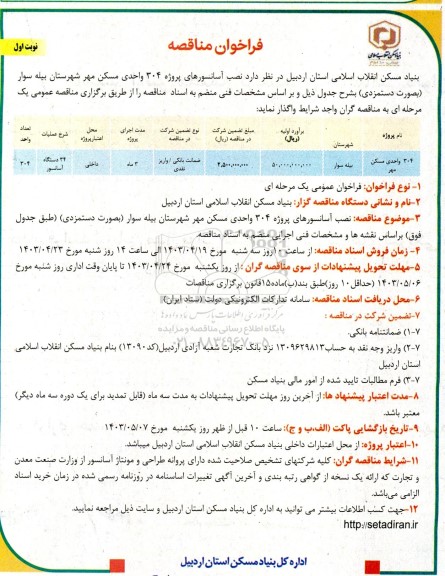 فراخوان مناقصه
نوبت اول
بنیاد مسکن انقلاب اسلامی استان اردبیل در نظر دارد نصب آسانسورهای پروژه ۳۰۴ واحدی مسکن مهر شهرستان بیله سوار
(بصورت دستمزدی) بشرح جدول ذیل و بر اساس مشخصات فنی منضم به اسناد مناقصه را از طریق برگزاری مناقصه عمومی یک
مرحله ای به مناقصه گران واجد شرایط واگذار نماید:
نام پروژه	شهرستان	برآورد اولیه (ریال)	مبلغ تضمین شرکت در مناقصه (ریال)	نوع تضمین شرکت در مناقصه	مدت اجرای پروژه	محل اعتبارپروژه	شرح عملیات	تعداد واحد
۳۰۴ واحدی مسکن مهر	بیله سوار	۵۰,۰۰۰,۰۰۰,۰۰۰	۲,۵۰۰,۰۰۰,۰۰۰	ضمانت بانکی / واریز نقدی	۳ ماه	داخلی	۲۴ دستگاه آسانسور	۳۰۴
۱- نوع فراخوان: فراخوان عمومی یک مرحله ای
۲-نام و نشانی دستگاه مناقصه گزار: بنیاد مسکن انقلاب اسلامی استان اردبیل
۳-موضوع مناقصه: نصب آسانسورهای پروژه ۳۰۴ واحدی مسکن مهر شهرستان بیله سوار (بصورت دستمزدی) (طبق جدول
فوق) براساس نقشه ها و مشخصات فنی اجرایی منضم به اسناد مناقصه.
۴- زمان فروش اسناد مناقصه: از ساعت ۱۰ روز سه شنبه مورخ ۱۴۰۳/۰۴/۱۹ الی ساعت ۱۴ روز شنبه مورخ ۱۴۰۳/۰۴/۲۳
۵-مهلت تحویل پیشنهادات از سوی مناقصه گران : از روز یکشنبه مورخ ۱۴۰۳/۰۴/۲۴ تا پایان وقت اداری روز شنبه مورخ
۱۴۰۳/۰۵/۰۶ (حداقل ۱۰ روز)طبق بند(ب)ماده۱۵قانون برگزاری مناقصات
۶-محل دریافت اسناد مناقصه: سامانه تدارکات الکترونیکی دولت (ستاد ایران)
۷-تضمین شرکت در مناقصه :
۷-۱) ضمانتنامه بانکی.
۷-۲) واریز وجه نقد به حساب۱۳۰۹۶۲۹۸۱۳ نزد بانک تجارت شعبه آزادی اردبیل(کد۱۳۰۹۰) بنام بنیاد مسکن انقلاب اسلامی
استان اردبیل
۷-۳) فرم مطالبات تایید شده از امور مالی بنیاد مسکن
۸-مدت اعتبار پیشنهاد ها: از آخرین روز مهلت تحویل پیشنهادات به مدت سه ماه (قابل تمدید برای یک دوره سه ماه دیگر)
معتبر باشد.
۹-تاریخ بازگشایی پاکت (الف،ب و ج): ساعت ۱۰ قبل از ظهر روز یکشنبه مورخ ۱۴۰۳/۰۵/۰۷
۱۰-اعتبار پروژه: از محل اعتبارات داخلی بنیاد مسکن انقلاب اسلامی استان اردبیل میباشد.
۱۱-شرایط مناقصه گران: کلیه شرکتهای تشخیص صلاحیت شده دارای پروانه طراحی و مونتاژ آسانسور از وزارت صنعت معدن
و تجارت که ارائه یک نسخه از گواهی رتبه بندی و آخرین آگهی تغییرات اساسنامه در روزنامه رسمی شده در زمان خرید اسناد
الزامی می‌باشد.
۱۲-جهت کسب اطلاعات بیشتر می توانید به اداره کل بنیاد مسکن استان اردبیل و سایت ذیل مراجعه نمایید.
http://setadiran.ir
اداره کل بنیاد مسکن استان اردبیل